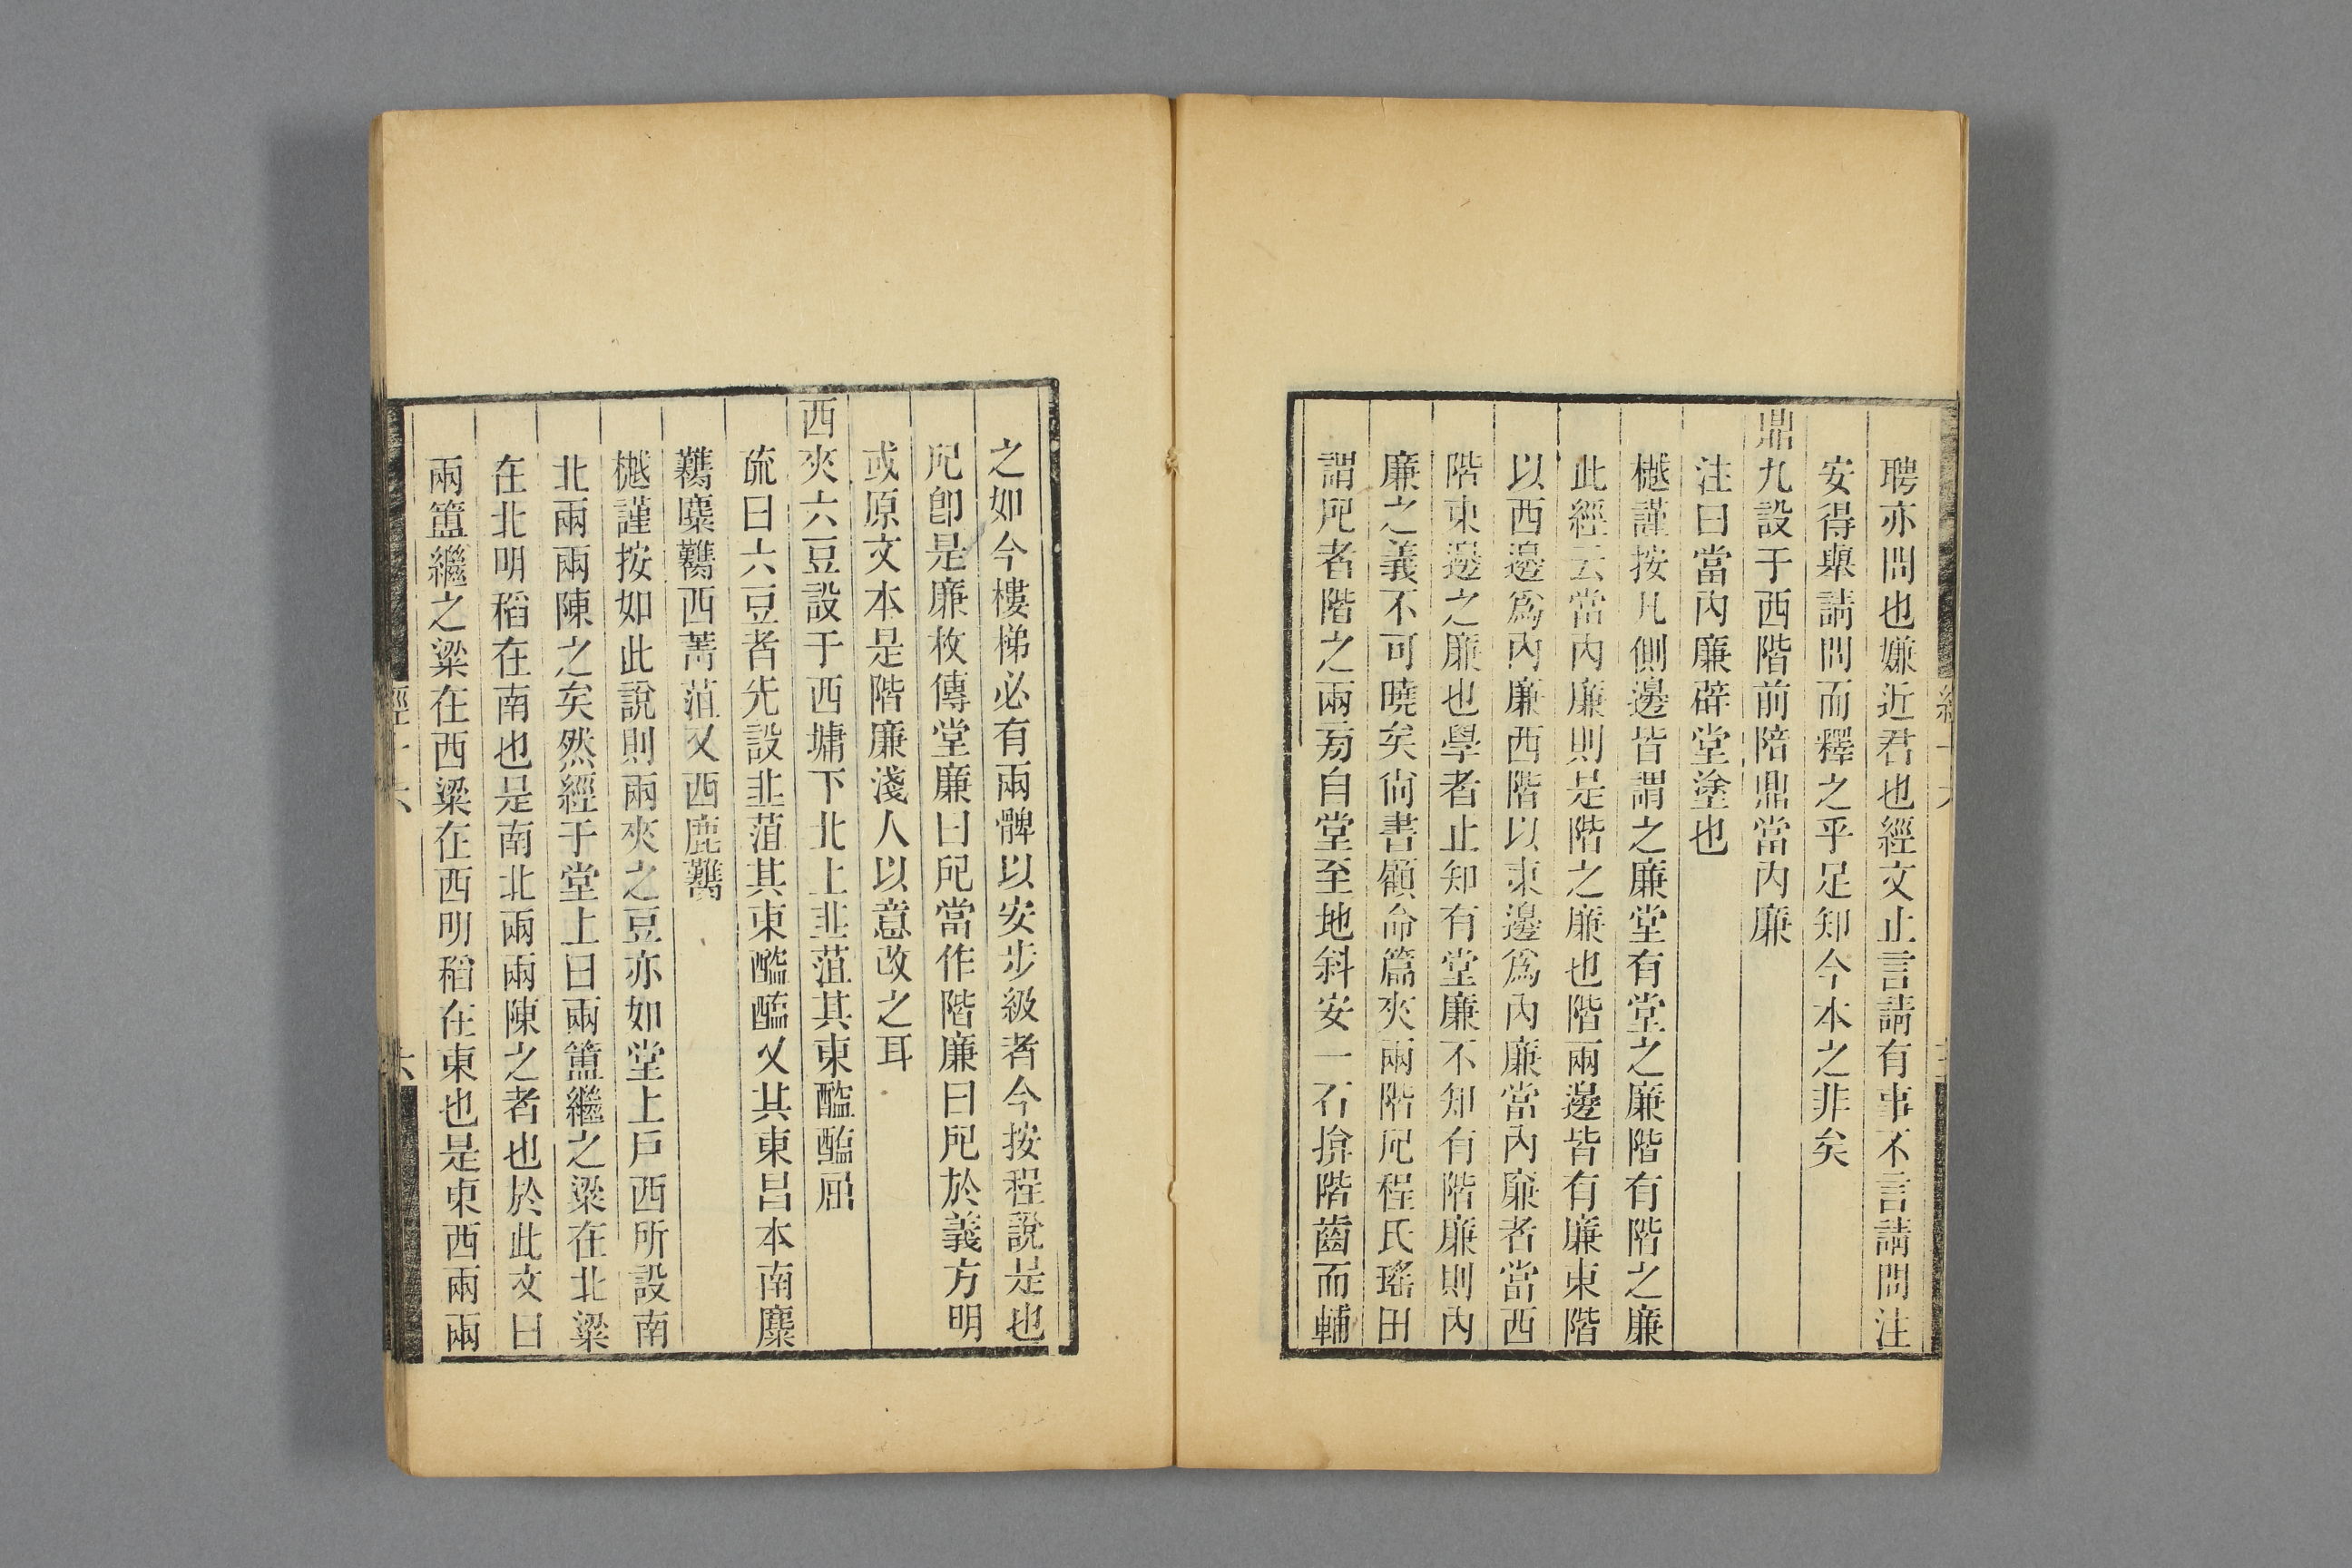 聘亦問也嫌近君也經文止言請有事不言請問注
安得槼請問而釋之乎足知今本之非矣
鼎九設于西階前陪鼎當內廉
注曰當內廉辟堂塗也
樾謹按凡側邊皆謂之廉堂有堂之廉階有階之廉
此經云當內廉則是階之廉也階兩邊皆有廉東階
以西邊爲內廉西階以東邊爲內廉當內廉者當西
階東邊之廉也學者止知有堂廉不知有階廉則內
廉之義不可曉矣尙書顧命篇夾兩階戺程氏瑤田
謂戺者階之兩旁自堂至地斜安一石揜階齒而輔
之如今樓梯必有兩髀以安步級者今按程說是也
戺卽是廉枚傳堂廉曰戺當作階廉曰戺於義方明
或原文本是階廉淺人以意改之耳
西夾六豆設于西墉下北上韭菹其東醓醢屈
疏曰六豆者先設韭菹其東醓醢又其東昌本南麋
臡麋臡西菁菹又西鹿臡
樾謹按如此說則兩夾之豆亦如堂上戶西所設南
北兩兩陳之矣然經于堂上曰兩簠繼之粱在北粱
在北明稻在南也是南北兩兩陳之者也於此文曰
兩簠繼之粱在西粱在西明稻在東也是東西兩兩
經十六
六